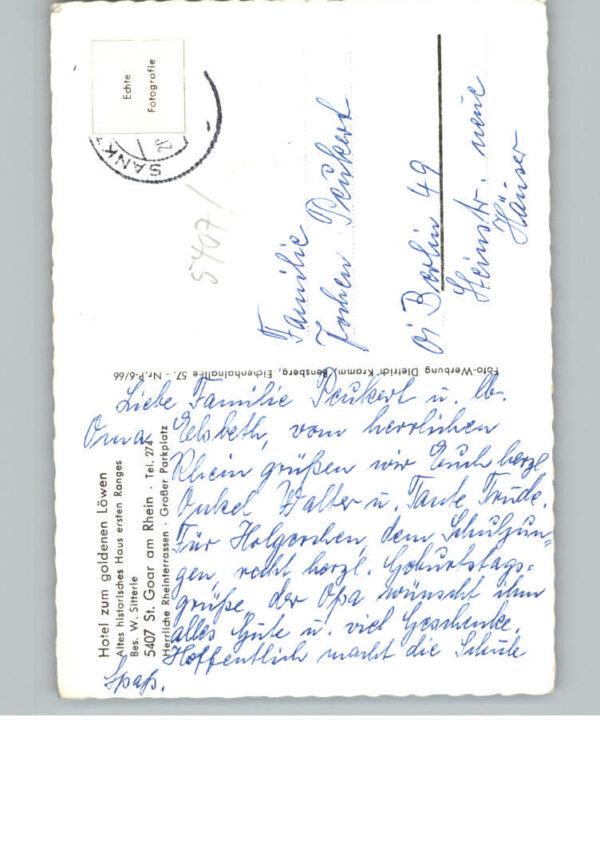 Echte
Fotografie
SANKT
5407/
Familie
Jochen Peukert
Berlin 49
Steinstr. neue
Häuser
Foto-Werbung Dietrich Kramm, Bensberg, Eichenhainallee 57. - Nr. P-6/66
Hotel zum goldenen Löwen
Altes historisches Haus ersten Ranges
Bes. W. Sitterle
5407 St. Goar am Rhein · Tel. 274
Herrliche Rheinterrassen · Großer Parkplatz
Liebe Familie Peukert u. lb.
Oma Elsbeth, vom herrlichen
Rhein grüßen wir Euch herzl.
Onkel Walter u. Tante Trude.
Für Holgerchen, dem Schuljun-
gen, recht herzl. Geburtstags-
grüße, der Opa wünscht ihm
alles Gute u. viel Geschenke.
Hoffentlich macht die Schule
Spaß.